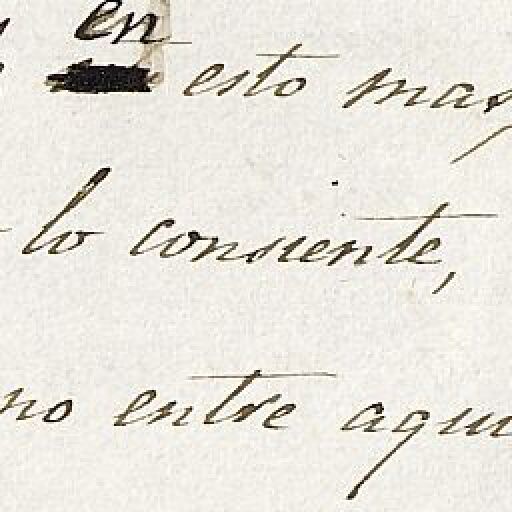 en
esto mas
lo consiente,
no entre aqui